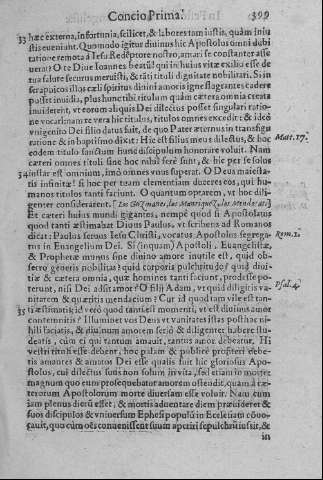 Concio Prima. 399
33 hæc externa, infortunia, scilicet, & labores tam iustis, quàm iniustis
eueniant. Quomodo igitur diuinus hic Apostolus omni dubitatione
remota à Iesu Redẽptore nostro, amari se constanter asseuerat?
O te Diue Ioannes beatũ! qui in huius vitæ exilio esse de
tua salute securus meruisti, & tãti tituli dignitate nobilitari. Si in
seraphicos illos cæli spiritus diuini amoris igne flagrantes cadere
posset inuidia, plus hunc tibi titulum quàm cætera omnia creata
inuiderent, vt eorum aliquis Dei dilectus posset singulari ratione
vocari: nam re vera hic titulus, titulos omnes excedit: & ideò
vnigenito Dei filio datus fuit, de quo Pater æternus in transfiguratione
& in baptismo dixit: Hic est filius meus dilectus, & hoc
Matt. 17.
eodem titulo sanctum hunc discipulum honorare voluit. Nam
cæteri omnes tituli sine hoc nihil ferè sunt, & hic per se solus
34 instar est omnium, imò omnes vnus superat. O Deus maiestatis
infinitæ! si hoc per tuam clementiam duceres eos, qui humanos
titulos tanti faciunt. O quantum optarem, vt hoc diligenter
considerarent.
Et cæteri huius mundi gigantes, nempè quod si Apostolatus
quod tanti æstimabat Diuus Paulus, vt scribens ad Romanos
dicat: Paulus seruus Iesu Christi, vocatus Apostolus segregatus
Rom. 1.
in Euangelium Dei. Si (inquam) Apostoli, Euangelistæ,
& Prophetæ munus sine diuino amore inutile est, quid obsecro
generis nobilitas? quid corporis pulchritudo? quid diuitiæ
& cætera omnia, quæ homines tanti faciunt, prodesse poterunt,
nisi Dei adsit amor? O filij Adam, vt quid diligitis vanitatem
Psal. 4.
& quæritis mendacium? Cur id quod tam vile est tanti
35 æstimatis, id verò quod tanti est momenti, vt est diuinus amor
contemnitis? Illuminet vos Deus vt vanitates istas posthac nihili
faciatis, & diuinum amorem seriò & diligenter habere studeatis,
cùm ei qui tantum amauit, tantus amor debeatur. Hi
vestri tituli esse debent, hoc palam & publicè profiteri debetis
amantes & amatos Dei esse qualis fuit hic gloriosus Apostolus,
cui dilectus suus non solùm in vita, sed etiam in morte
magnum quo eum prosequebatur amorem ostendit, quam à cæterorum
Apostolorum morte diuersam esse voluit. Nam cum
iam plenus dierũ esset, & mortis aduentare diem præuideret &
suos discipulos & vniuersum Ephesi populũ in Ecclesiam cõuocauit,
quo cùm oẽs conuenissent suum aperiri sepulchrũ iussit, &
in